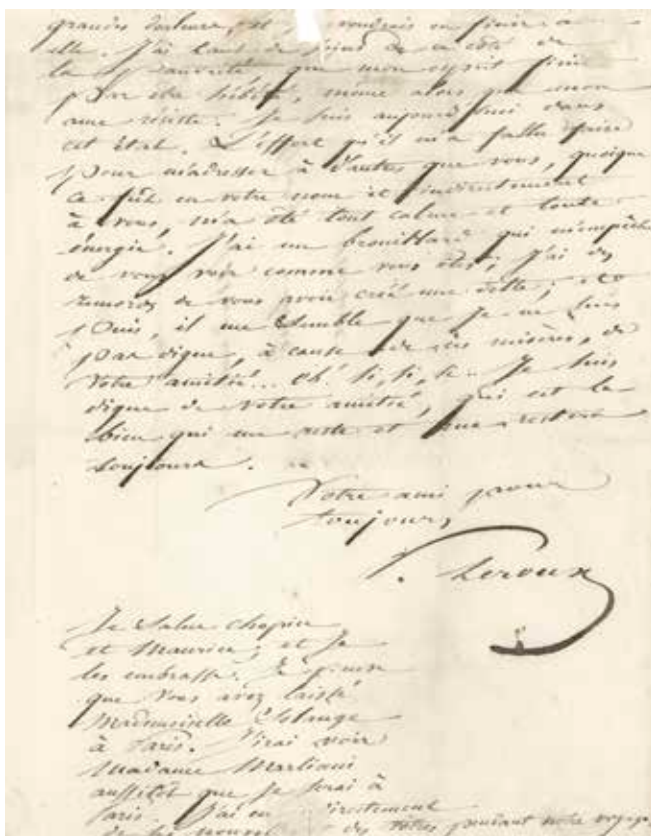 grandes douleurs, et je voudrais en finir avec
elle. J'ai tant de soins de ce côté de
la pauvreté, que mon esprit finit
par être hébété, même alors que mon
ame résiste. Je suis aujourd'hui dans
cet état. L'effort qu'il m'a fallu faire
pour m'adresser à d'autres que vous, quoique
ce fût en votre nom et indirectement
à vous, m'a ôté tout calme et toute
énergie. J'ai un brouillard qui m'empêche
de vous voir comme vous êtes; j'ai des
remords de vous avoir créé une dette; et
puis, il me semble que je ne suis
pas digne, à cause de ces misères, de
votre amitié... Oh! si, si, si. Je suis
digne de votre amitié, qui est le
bien qui me reste et me restera
toujours.
Votre ami pour
toujours,
P. Leroux
Je salue Chopin
et Maurice, et je
les embrasse. Je pense
que vous avez laissé
Mademoiselle Solange
à Paris. J'irai voir
Madame Marliani
aussitôt que je serai à
Paris. J'ai eu directement
de ses nouvelles des vôtres pendant votre voyage